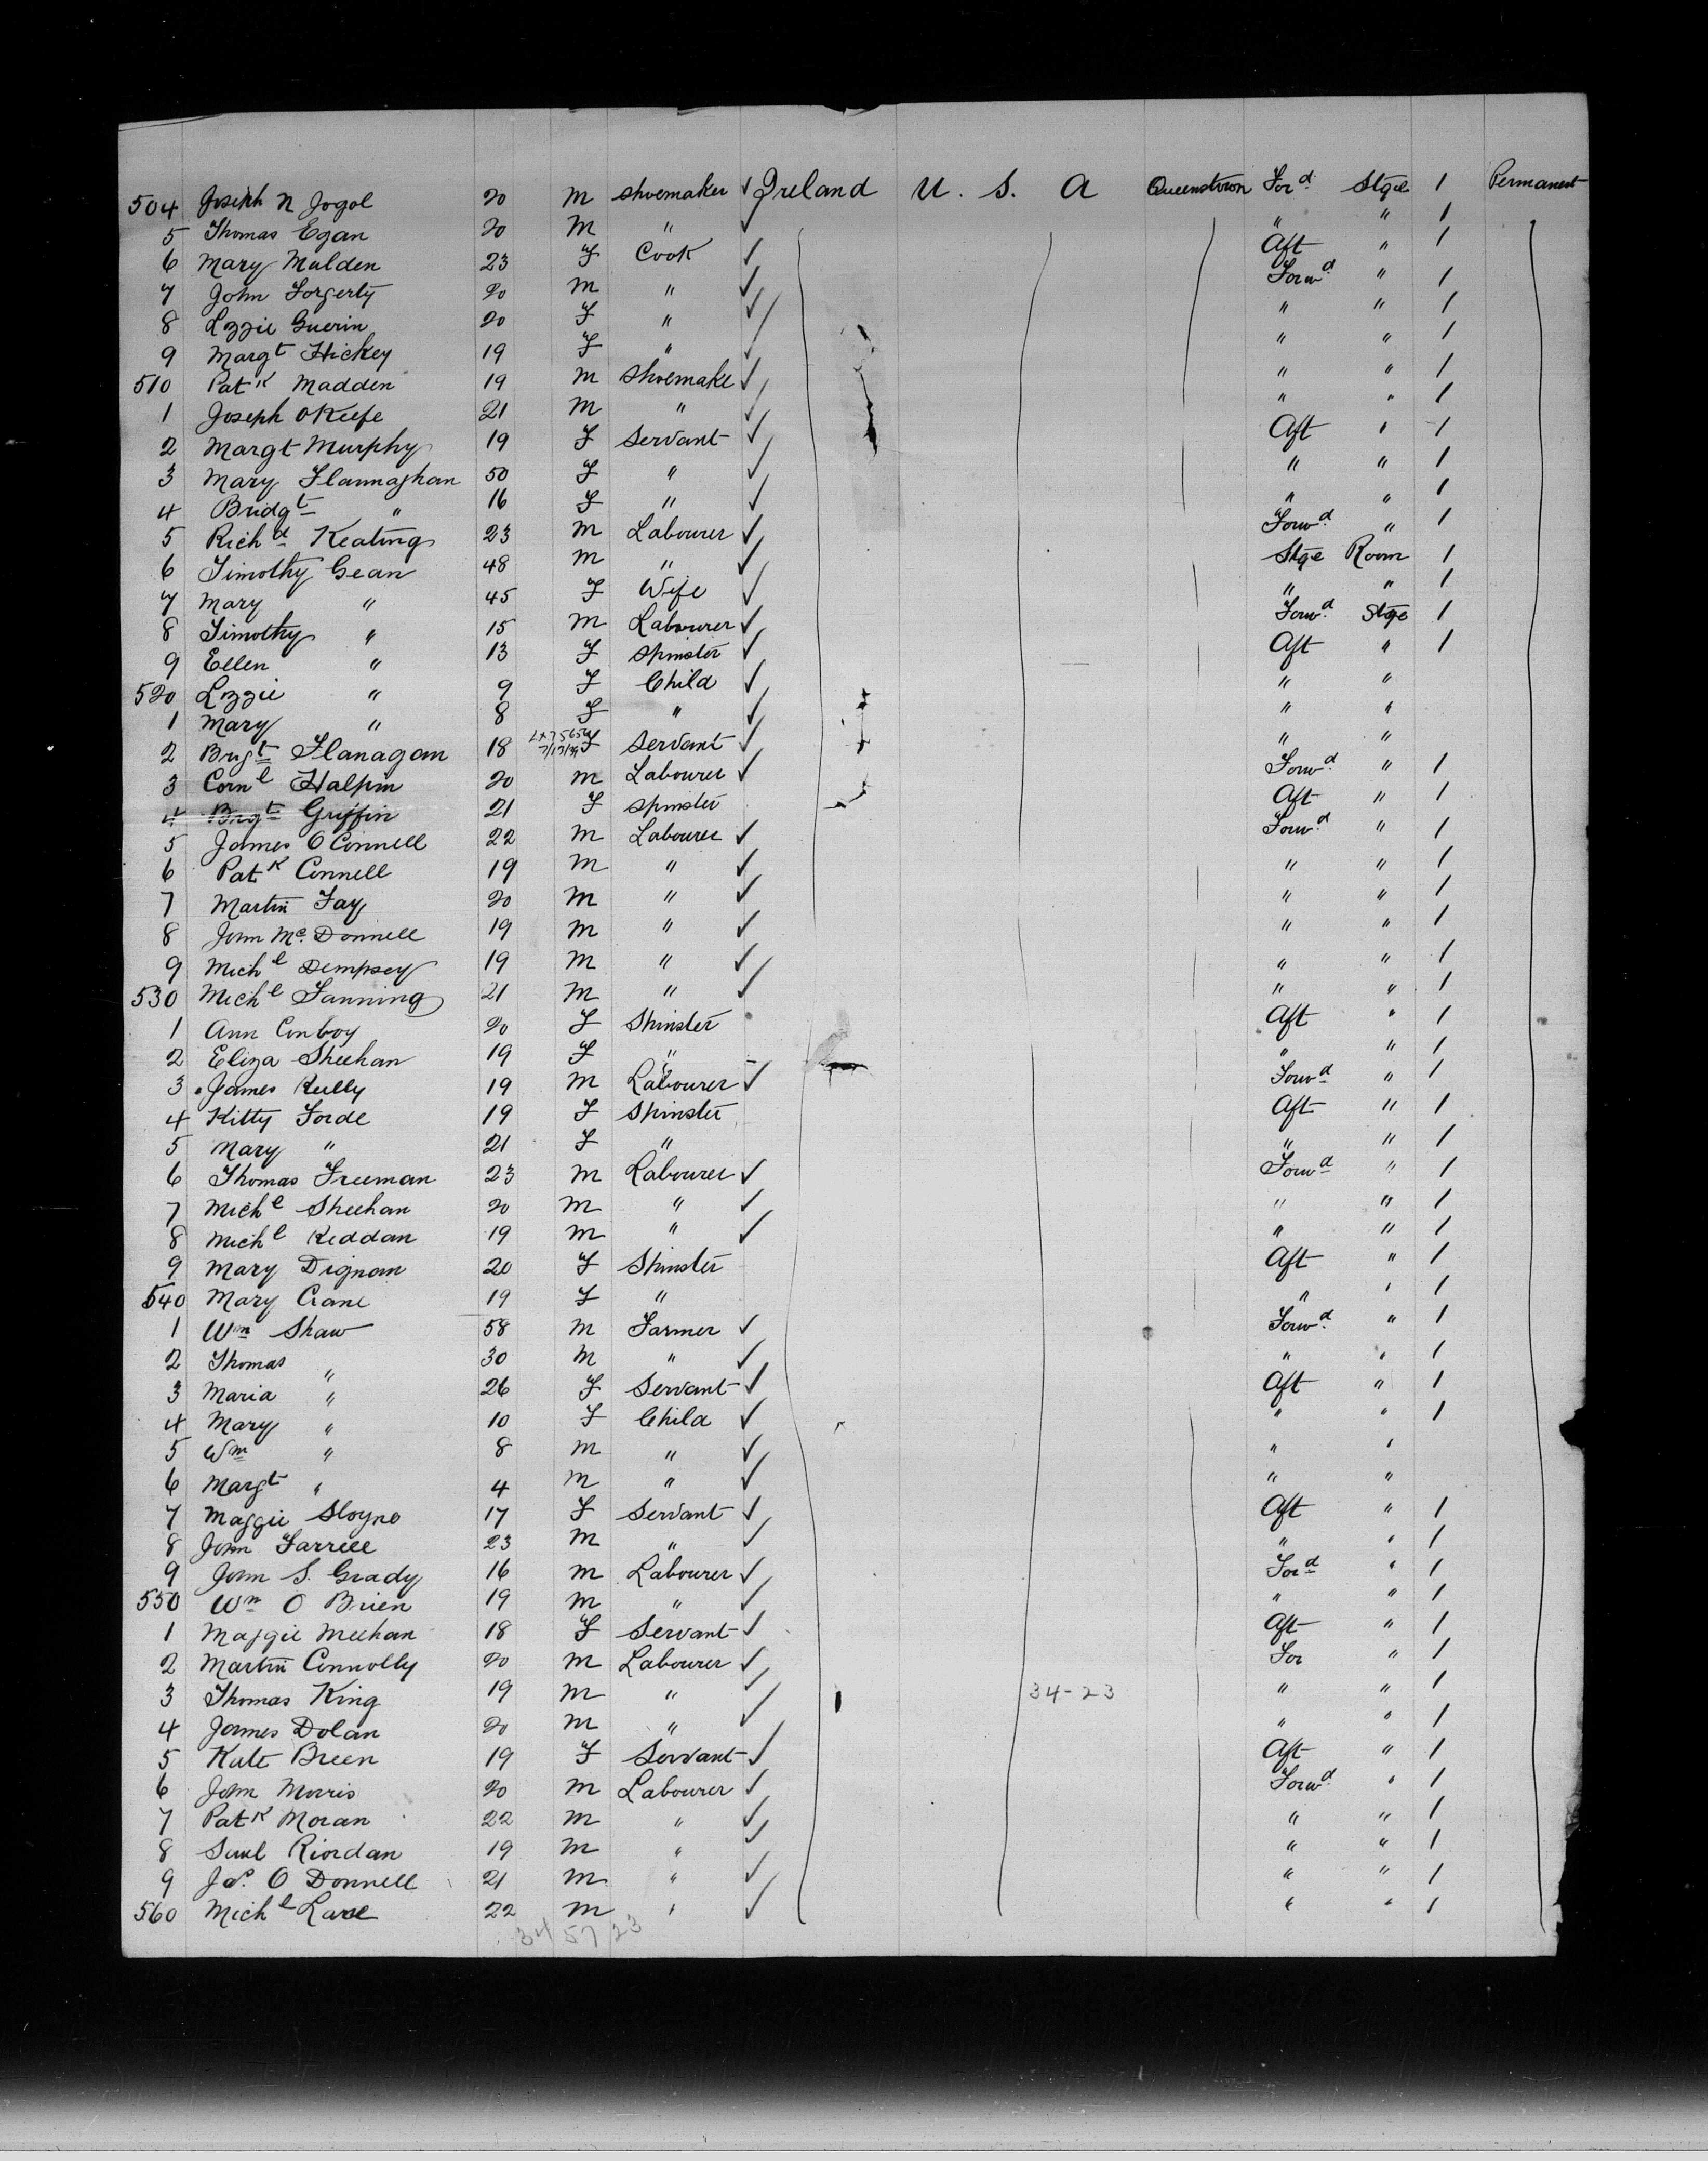 504 Joseph N Jogol 20 M Shoemaker ✓ Ireland U. S. A Queenstown For<sup>d</sup> Stge 1 Permanent
5 Thomas Egan 20 M " ✓ " " 1
6 Mary Mulden 23 F Cook ✓ Aft " 1
7 John Forgerty 20 M " ✓ Forw<sup>d</sup> " 1
8 Lizzie Guerin 20 F " ✓ " " 1
9 Marg<sup>t</sup> Hickey 19 F " ✓ " " 1
510 Pat<sup>k</sup> Madden 19 M Shoemake ✓ " " 1
1 Joseph OKeefe 21 M " ✓ " " 1
2 Margt Murphy 19 F Servant ✓ Aft " 1
3 Mary Flannaghan 50 F " ✓ " " 1
4 Bridg<sup>t</sup> " 16 F " ✓ " " 1
5 Rich<sup>d</sup> Keating 23 M Labourer ✓ Forw<sup>d</sup> " 1
6 Timothy Gean 48 M " ✓ Stge Room 1
7 Mary " 45 F Wife ✓ " " 1
8 Timothy " 15 M Labourer ✓ Forw<sup>d</sup> Stge 1
9 Ellen " 13 F Spinster ✓ Aft " 1
520 Lizzie " 9 F Child ✓ " "
1 Mary " 8 F " ✓ " "
2 Brig<sup>t</sup> Flanagan 18 F Servant ✓ " "
3 Corn<sup>l</sup> Halpin 20 M Labourer ✓ Forw<sup>d</sup> " 1
4 Brig<sup>t</sup> Griffin 21 F Spinster Aft " 1
5 James O Connell 22 M Labourer ✓ Forw<sup>d</sup> " 1
6 Pat<sup>k</sup> Connell 19 M " ✓ " " 1
7 Martin Fay 20 M " ✓ " " 1
8 John Mc. Donnell 19 M " ✓ " " 1
9 Mich<sup>l</sup> Dempsey 19 M " ✓ " " 1
530 Mich<sup>l</sup> Fanning 21 M " ✓ " " 1
1 Ann Conboy 20 F Spinster Aft " 1
2 Eliza Sheehan 19 F " " " 1
3 James Kelly 19 M Labourer ✓ Forw<sup>d</sup> " 1
4 Kitty Forde 19 F Spinster Aft " 1
5 Mary " 21 F " " " 1
6 Thomas Freeman 23 M Labourer ✓ Forw<sup>d</sup> " 1
7 Mich<sup>l</sup> Sheehan 20 M " ✓ " " 1
8 Mich<sup>l</sup> Keddan 19 M " ✓ " " 1
9 Mary Dignan 20 F Spinster Aft " 1
540 Mary Crane 19 F " " " 1
1 W<sup>m</sup> Shaw 58 M Farmer ✓ Forw<sup>d</sup> " 1
2 Thomas " 30 M " ✓ " " 1
3 Maria " 26 F Servant ✓ Aft " 1
4 Mary " 10 F Child ✓ " " 1
5 W<sup>m</sup> " 8 M " ✓ " "
6 Marg<sup>t</sup> " 4 M " ✓ " "
7 Maggie Sloyne 17 F Servant ✓ Aft " 1
8 John Farrell 23 M " ✓ " " 1
9 John S. Grady 16 M Labourer ✓ For<sup>d</sup> " 1
550 W<sup>m</sup> O Brien 19 M " ✓ " " 1
1 Maggie Meehan 18 F Servant ✓ Aft " 1
2 Martin Connolly 20 M Labourer ✓ For " 1
3 Thomas King 19 M " ✓ 34-23 " " 1
4 James Dolan 20 M " ✓ " " 1
5 Kate Breen 19 F Servant ✓ Aft " 1
6 John Morris 20 M Labourer ✓ Forw<sup>d</sup> " 1
7 Pat<sup>k</sup> Moran 22 M " ✓ " " 1
8 Riordan 19 M " ✓ " " 1
9 O Donnell 21 M " ✓ " " 1
560 Mich<sup>l</sup> Lane 22 M " ✓ " " 1
34 57 23